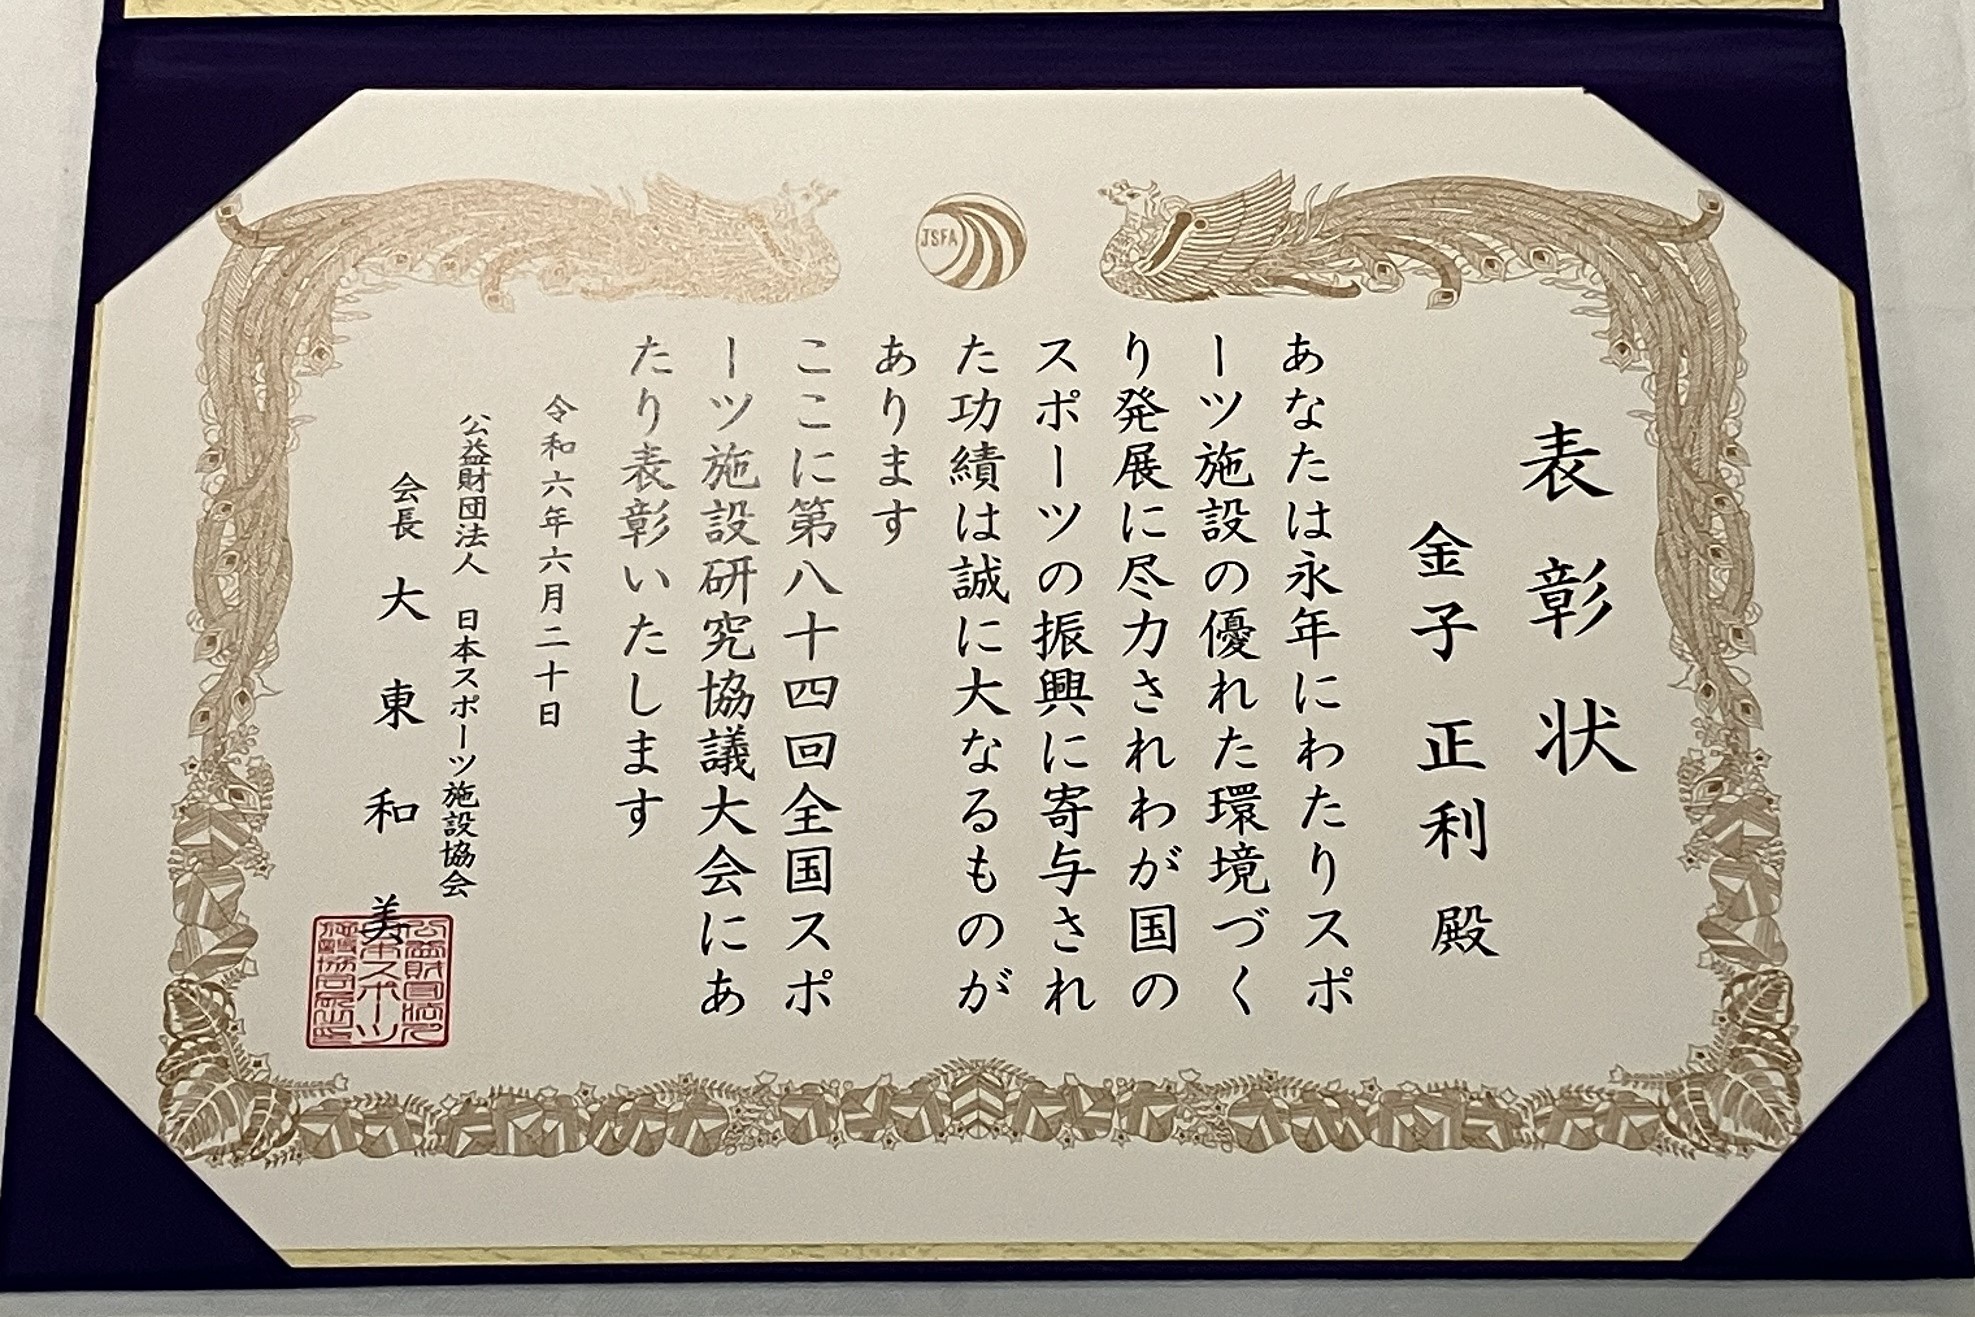 JSFA
表彰状
金子正利殿
あなたは永年にわたりスポ
ーツ施設の優れた環境づく
り発展に尽力されわが国の
スポーツの振興に寄与され
た功績は誠に大なるものが
あります
ここに第八十四回全国スポ
ーツ施設研究協議大会にあ
たり表彰いたします
令和六年六月二十日
公益財団法人 日本スポーツ施設協会
会長 大東和美